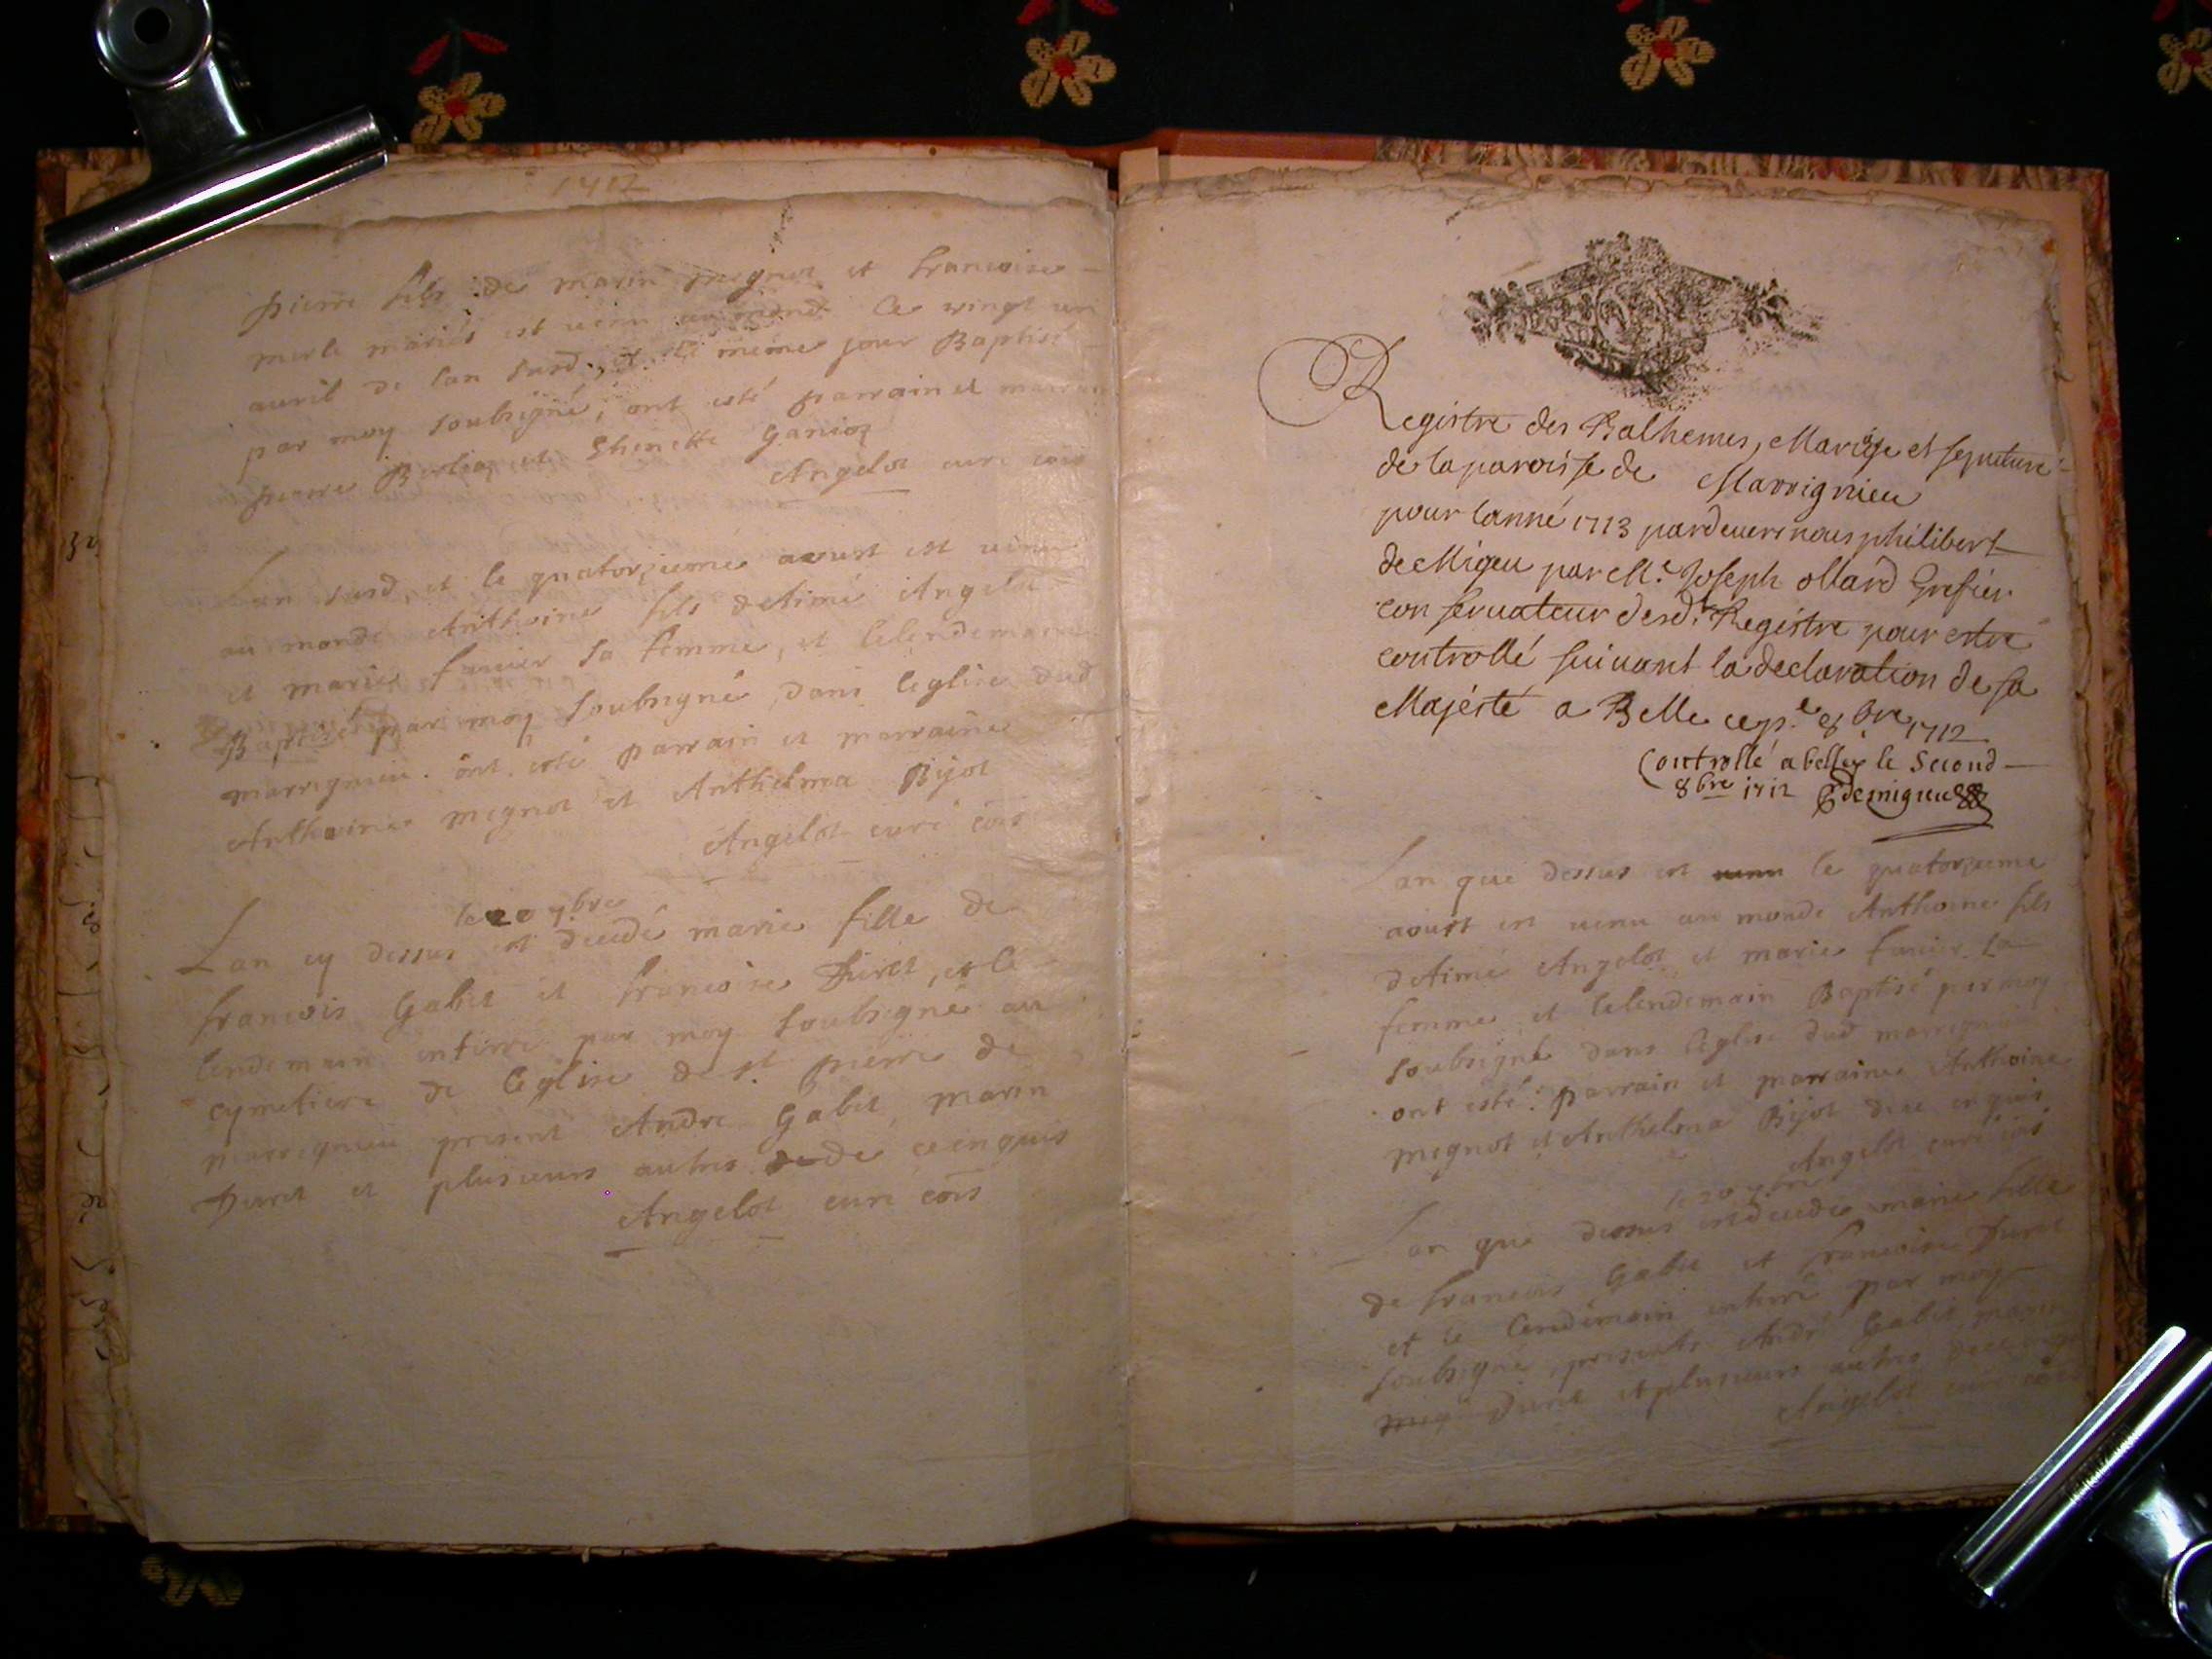 1712
pierre fils de marin megnot et francoise
merle mariés est venu au monde le vingt un
auril de lan susd, et le meme jour Baptisé
par moy soubsigné, ont esté parrain et marrain
pierre Berlioz et Thenette Ganioz
Angelot curé
Lan susd, et le quatorzieme aoust est venu
au monde Anthoine fils dAimé Angelot
et marie favier sa femme, et lelendemain
Baptisé par moy soubsigné, dans leglise dud
marrignieu. ont esté parrain et marraine
Anthoine megnot et Anthelma Bijot
Angelot curé cõis
le 20 7bre
Lan cy dessus est decedé marie fille de
francois Gabet et francoise Duret, et le
lendemain enterré par moy soubsigné au
cymetiere de leglise de st pierre de
marrignieu present Andre Gabet, marin
Duret et plusieurs autres de ce enquis
Angelot curé cõis
Registre des Balhemes, Mariage et sepulture
de la paroisse de Marrignieu
pour lanné 1713 pardeuers nous philibert
de Migeu par Me. Joseph ollard Grefier
conseruateur desd. Registre pour estre
controllé suiuant la declaration de sa
Majesté a Belle ce pe. 8bre 1712
Controllé a belley le Second
8bre 1712 demigieu
Lan que dessus est venu le quatorzieme
aoust est venu au monde Anthoine fils
dAimé Angelot et marie favier sa
femme, et lelendemain Baptisé par moy
soubsigné dans leglise dud marrignieu
ont esté: parrain et marraine Anthoine
megnot et Anthelma Bijot de ce enquis
Angelot curé cõis
le 20 7bre
Lan que dessus est decedé marie fille
de francois Gabet et francoise Duret
et le lendemain enterré par moy
soubsigné, presents André Gabet marin
Duret et plusieurs autres de ce enquis
Angelot curé cõis